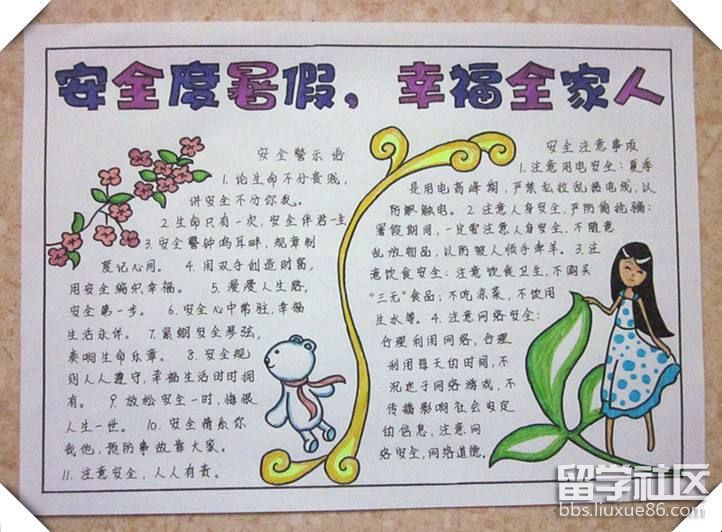 安全度暑假，幸福全家人
安全警示语
1.论生命不分贵贱，
讲安全不分你我。
2生命只有一次，安全伴君一生
3.安全警钟鸣耳畔，规章制
度记心间。 4.用双手创造财富，
用安全编织幸福。 5.漫漫人生路，
安全第一步。 6.安全心中常驻，幸福
生活永伴。 7.紧绷安全琴弦，
奏响生命乐章。 8.安全规
则人人遵守，幸福生活时时拥
有。 9.放松安全一时，悔恨
人生一世。 10.安全情系你
我他，预防事故靠大家。
11.注意安全，人人有责。
安全注意事项
1.注意用电安全：夏季
是用电高峰期，严禁私拉乱接电线，以
防触电。2.注意人身安全，严防偷抢骗：
暑假期间，一定要注意人身安全，不随意
乱放物品，以防被人顺手牵羊。3.注
意饮食安全：注意饮食卫生，不购买
“三无”食品；不吃凉菜，不饮用
生水等。4.注意网络安全：
合理利用网络，合理
利用每天的时间，不
沉迷于网络游戏，不
传播影响社会安定
的信息，注意网
络安全，网络道德。
留学社区
bbs.liuxue86.com